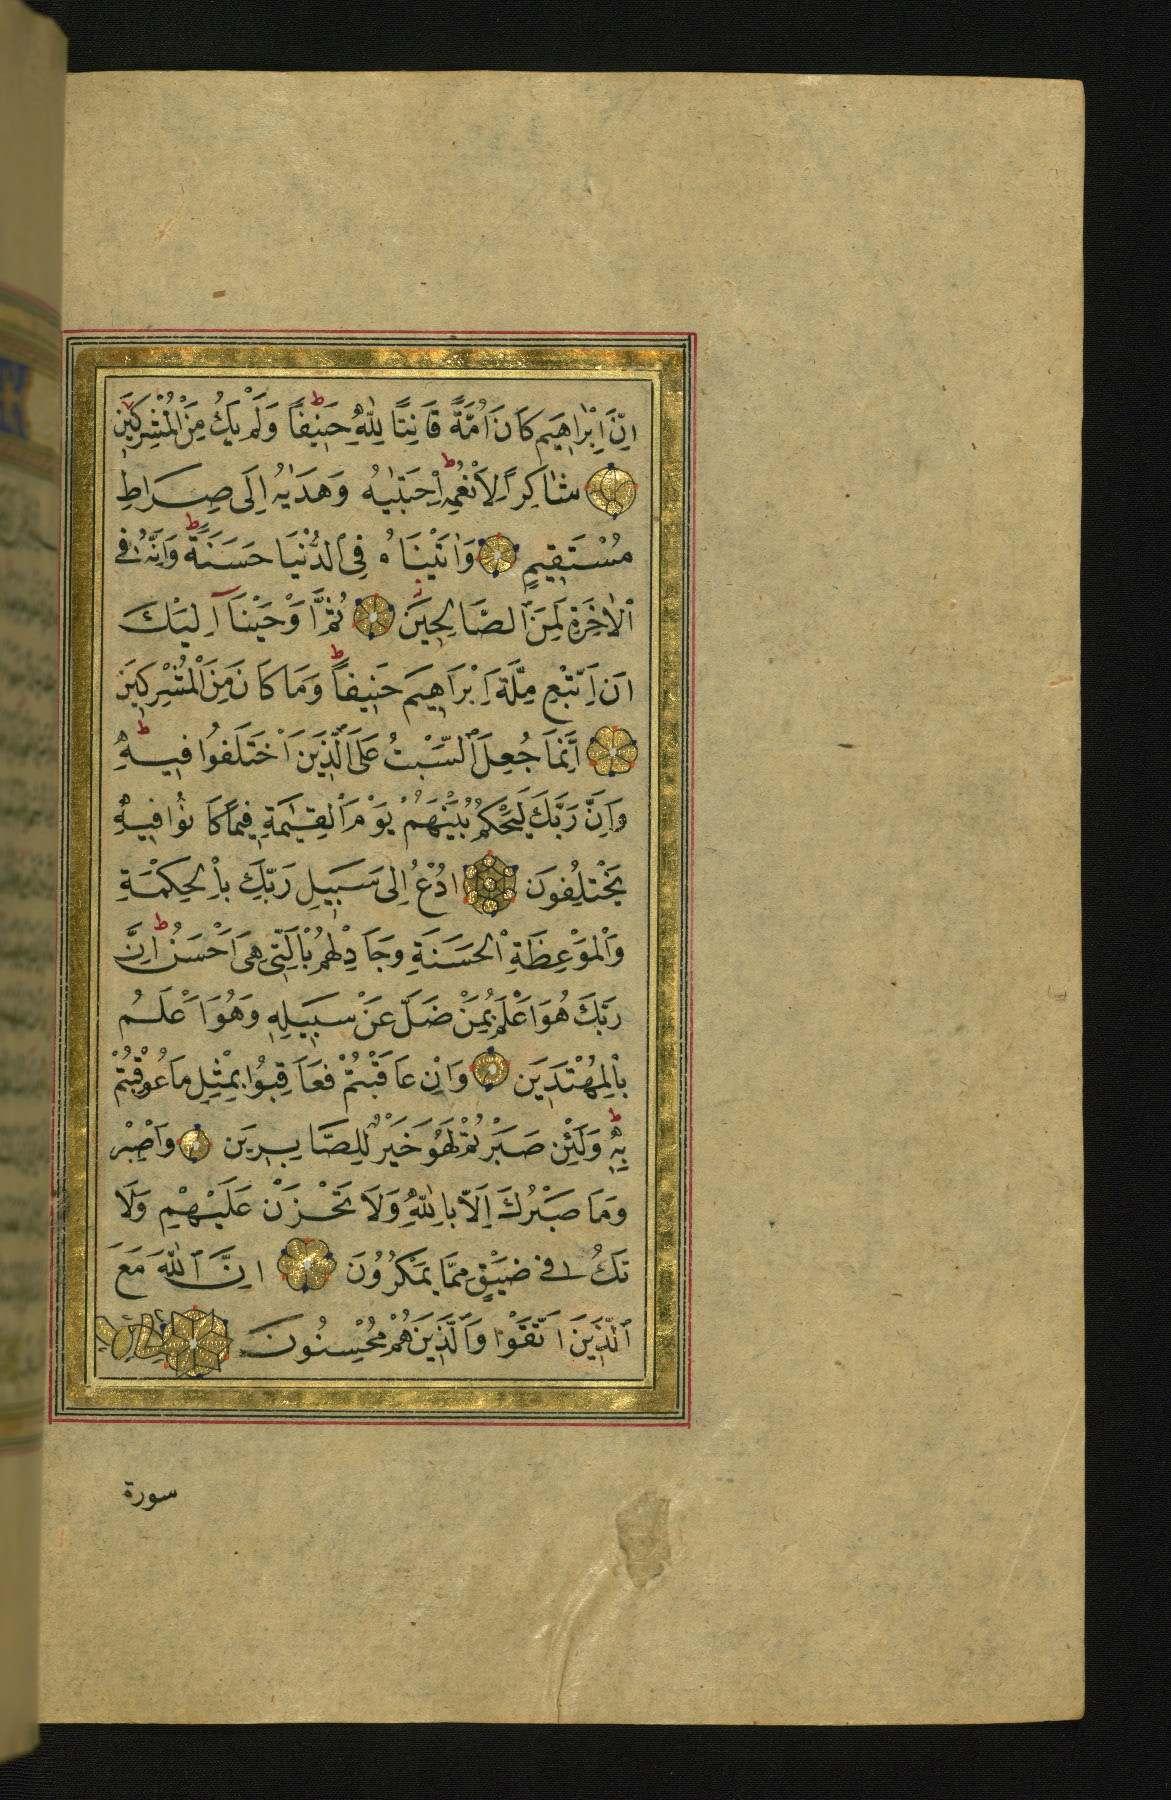 اِنَّ اِبْرٰاهِيمَ كَانَ اُمَّةً قَانِتًا لِلّٰهِ حَنِيفًا ط وَلَمْ يَكُ مِنَ الْمُشْرِكِينَ لا
شَاكِرًا لِاَنْعُمِهِ ط اِجْتَبٰيهُ وَهَدٰيهُ اِلَى صِرَاطٍ
مُسْتَقِيمٍ وَاٰتَيْنَاهُ فِى الدُّنْيَا حَسَنَةً ط وَاِنَّهُ فِى
الْاٰخِرَةِ لَمِنَ الصَّالِحِينَ ثُمَّ اَوْحَيْنَا اِلَيْكَ
اَنِ اتَّبِعْ مِلَّةَ اِبْرَاهِيمَ حَنِيفًا ط وَمَا كَانَ مِنَ الْمُشْرِكِينَ
اِنَّمَا جُعِلَ السَّبْتُ عَلَى الَّذِينَ اخْتَلَفُوا فِيهِ ط
وَاِنَّ رَبَّكَ لَيَحْكُمُ بَيْنَهُمْ يَوْمَ الْقِيٰمَةِ فِيمَا كَانُوا فِيهِ
يَخْتَلِفُونَ اُدْعُ اِلٰى سَبِيلِ رَبِّكَ بِالْحِكْمَةِ
وَالْمَوْعِظَةِ الْحَسَنَةِ وَجَادِلْهُمْ بِالَّتِى هِىَ اَحْسَنُ ط اِنَّ
رَبَّكَ هُوَ اَعْلَمُ بِمَنْ ضَلَّ عَنْ سَبِيلِهِ وَهُوَ اَعْلَمُ
بِالْمُهْتَدِينَ وَاِنْ عَاقَبْتُمْ فَعَاقِبُوا بِمِثْلِ مَا عُوقِبْتُمْ
بِهِ ط وَلَئِنْ صَبَرْتُمْ لَهُوَ خَيْرٌ لِلصَّابِرِينَ وَاصْبِرْ
وَمَا صَبْرُكَ اِلَّا بِاللّٰهِ وَلَا تَحْزَنْ عَلَيْهِمْ وَلَا
تَكُ فِى ضَيْقٍ مِمَّا يَمْكُرُونَ اِنَّ اللّٰهَ مَعَ
الَّذِينَ اتَّقَوْا وَالَّذِينَ هُمْ مُحْسِنُونَ
سورة